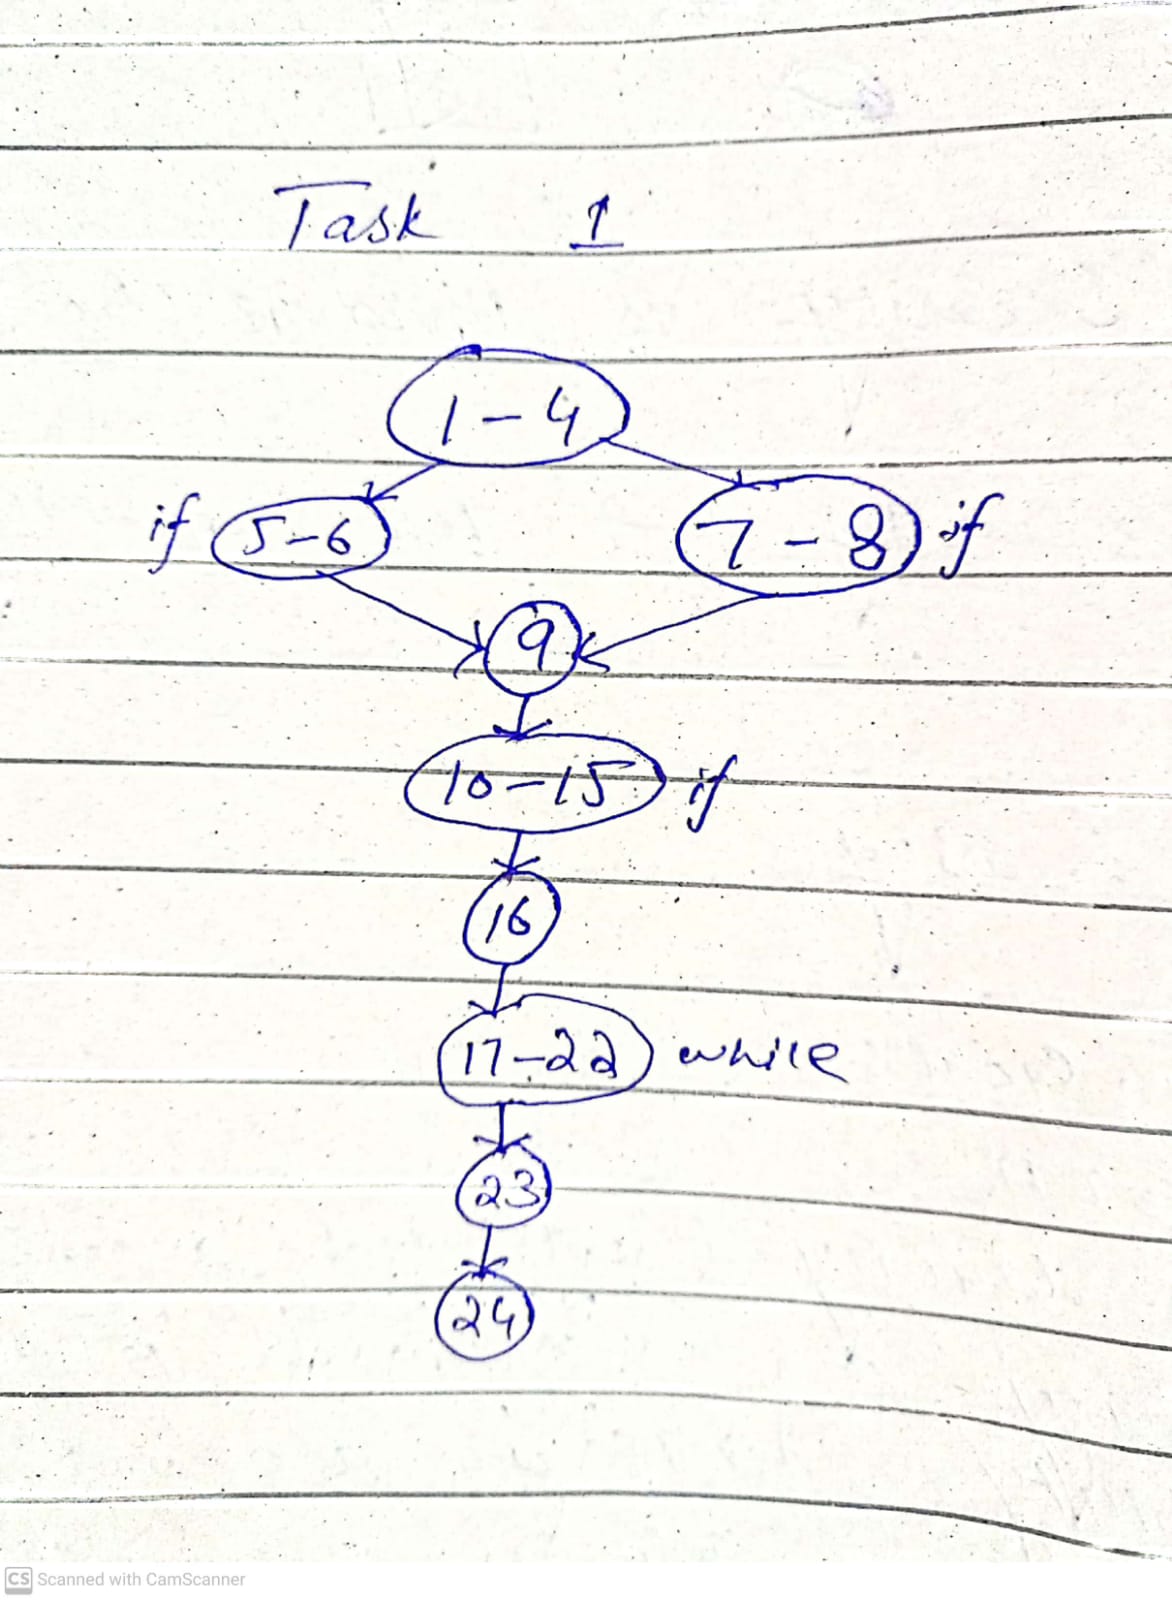 Task 1
1-4
if 5-6 7-8 if
9
10-15 if
16
17-22 while
23
24
CS Scanned with CamScanner